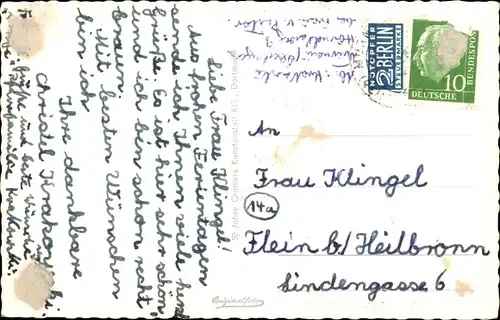 Liebe Frau Klingel!
Aus frohen Ferientagen
sende ich Ihnen viele herzl.
Grüße. Es ist hier sehr schön
und ich bin schon recht
braun.
Mit besten Wünschen
bin ich
Ihre dankbare
Christel
Grüße und beste Wünsche
50 Jahre Cramers Kunstanstalt KG., Dortmund
Originalfoto
NOTOPFER
2 BERLIN
STEUERMARKE
10
DEUTSCHE
BUNDESPOST
An
Frau Klingel
14a
Flein b/Heilbronn
Lindengasse 6